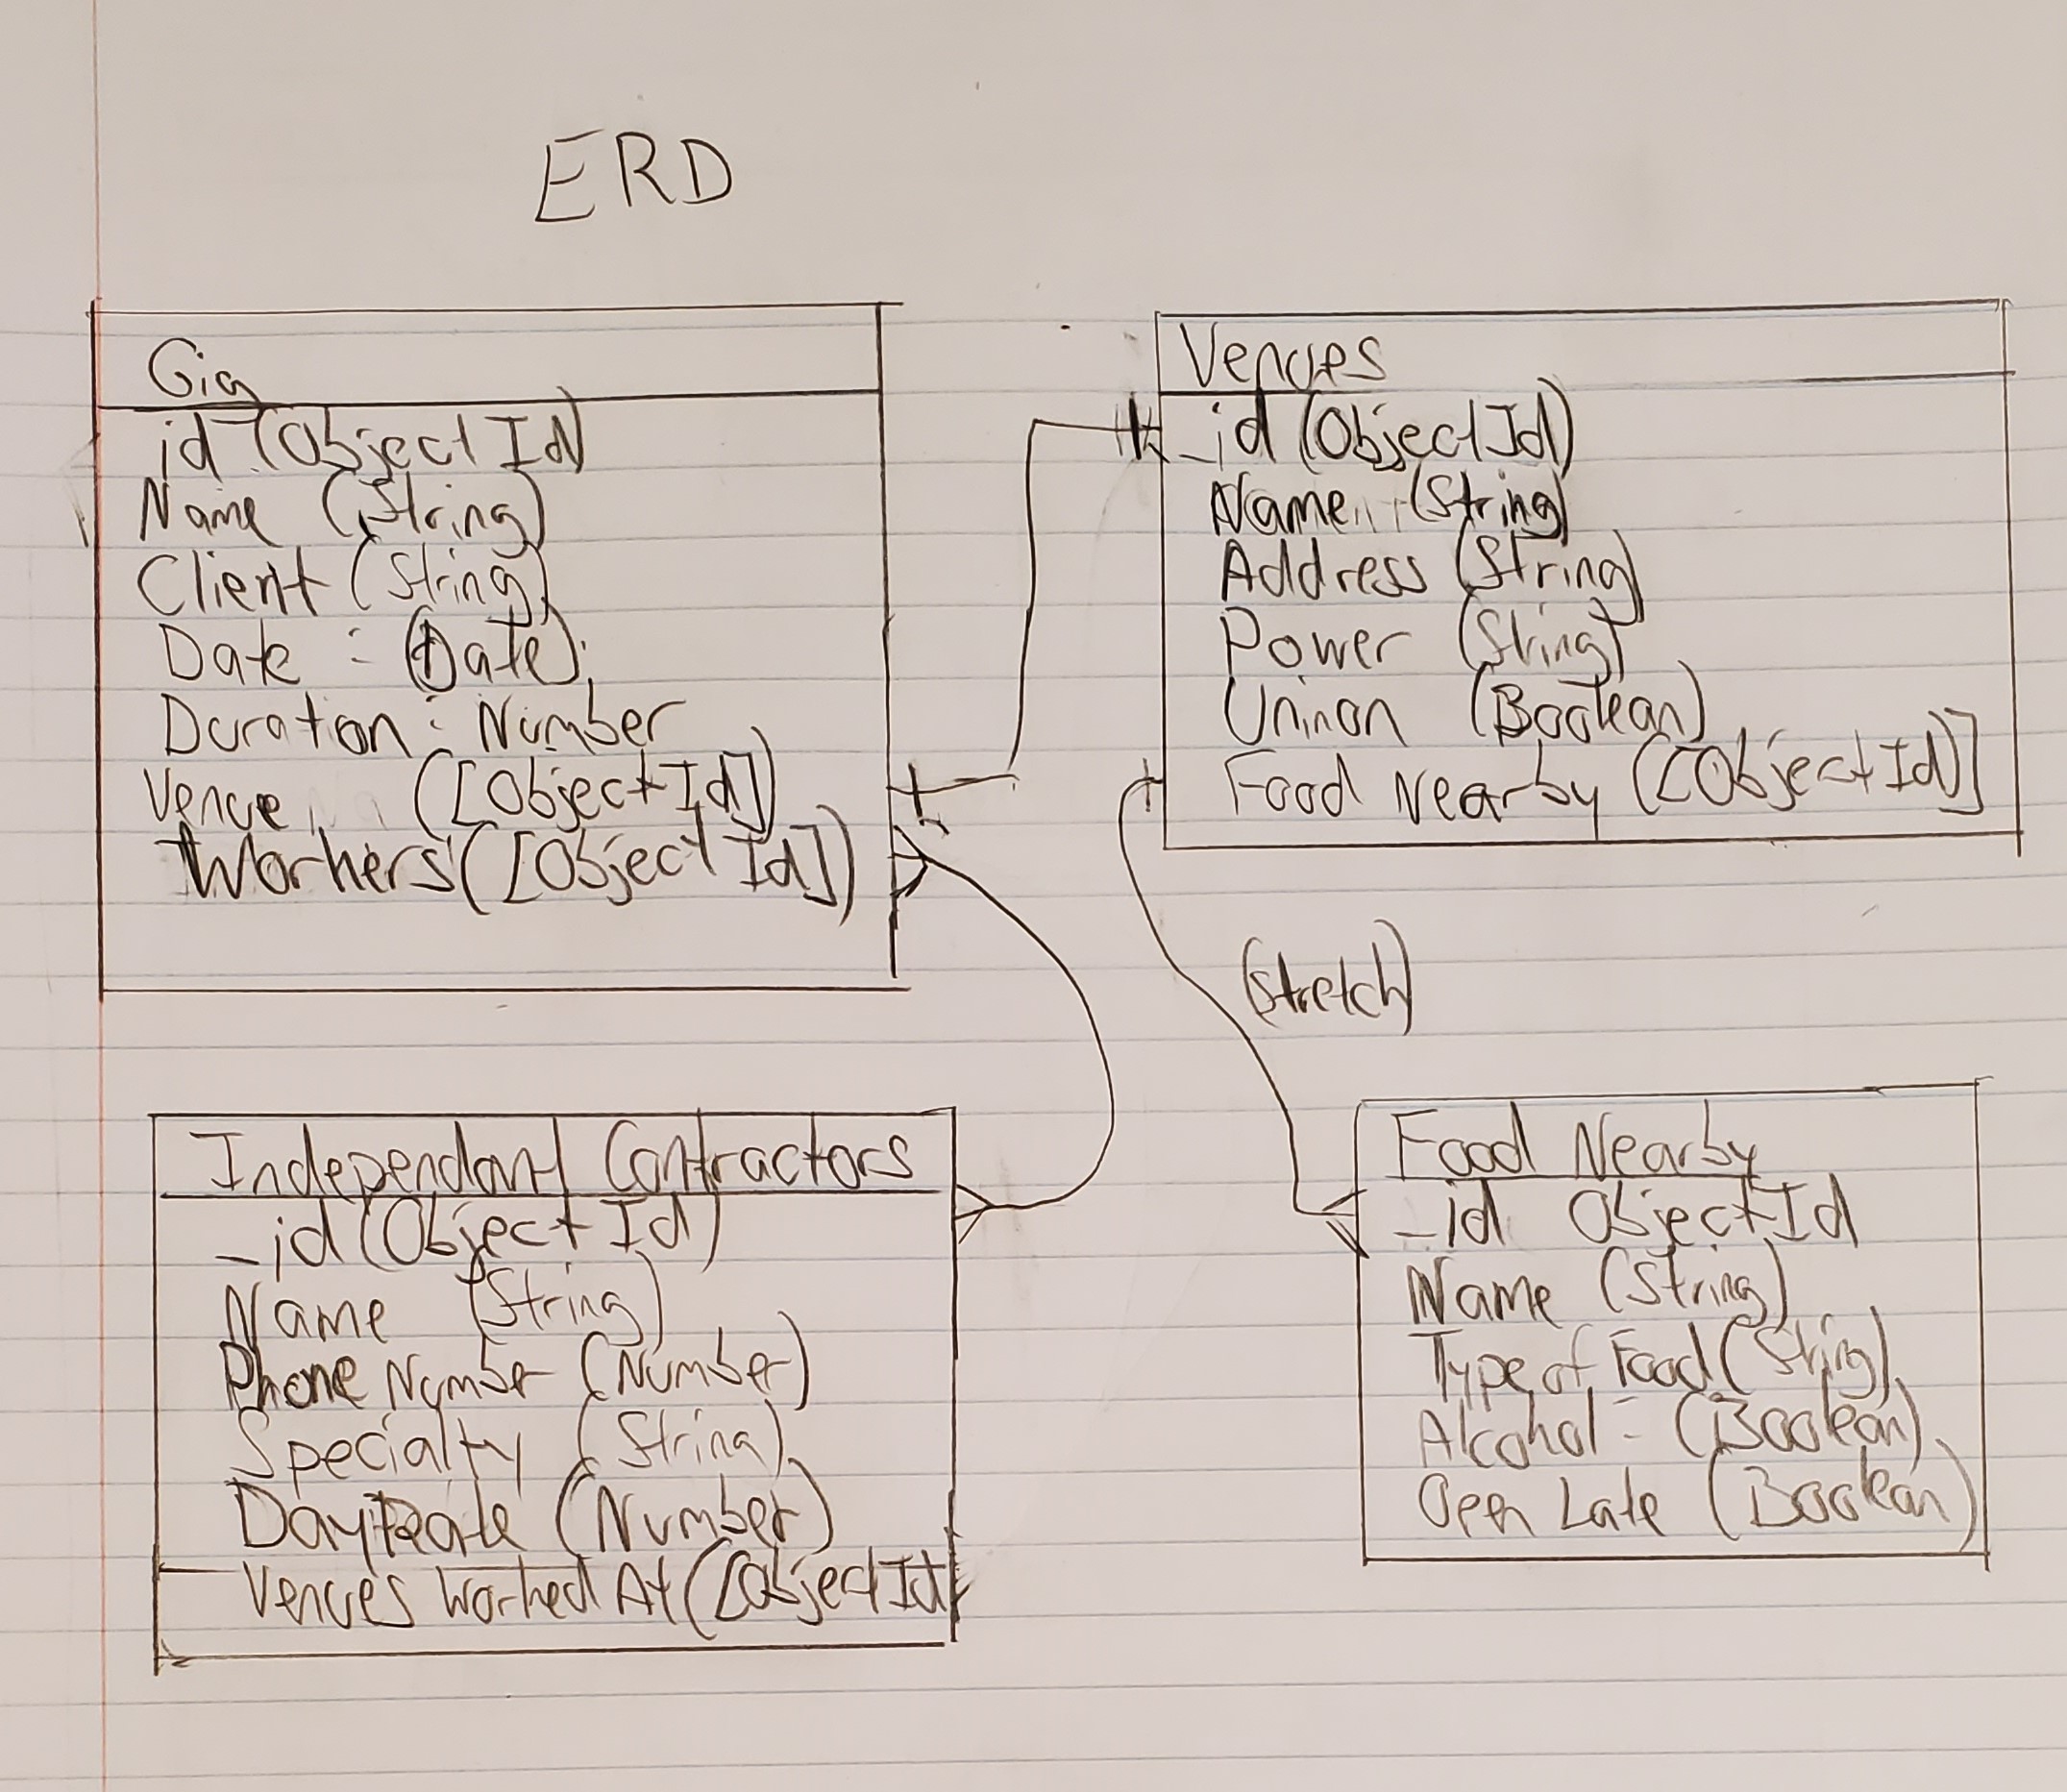 ERD
Gig
id (ObjectId)
Name (String)
Client (String)
Date : (Date)
Duration : Number
Venue ([ObjectId])
Workers ([ObjectId])
Venues
_id (ObjectId)
Name (String)
Address (String)
Power (String)
Uninon (Boolean)
Food Nearby ([ObjectId]
(stretch)
Independant Contractors
_id (ObjectId)
Name (String)
Phone Number (Number)
Specialty (String)
DayRate (Number)
Venues Worked At ([ObjectId]
Food Nearby
_id ObjectId
Name (String)
Type of Food (String)
Alcohol : (Boolean)
Open Late (Boolean)